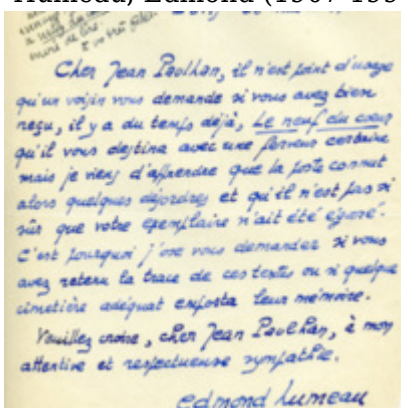 Humeau, Edmond (1907-199
Cher Jean Paulhan, il n'est point d'usage
qu'un voisin vous demande si vous avez bien
reçu, il y a du temps déjà, Le neuf du coeur
qu'il vous destina avec une ferveur certaine
mais je viens d'apprendre que la poste connut
alors quelques désordres et qu'il n'est pas si
sûr que votre exemplaire n'ait été égaré.
C'est pourquoi j'ose vous demander si vous
avez retenu la trace de ces textes ou si quelque
cimetière adéquat emporta leur mémoire.
Veuillez croire, cher Jean Paulhan, à mon
attentive et respectueuse sympathie.
edmond humeau